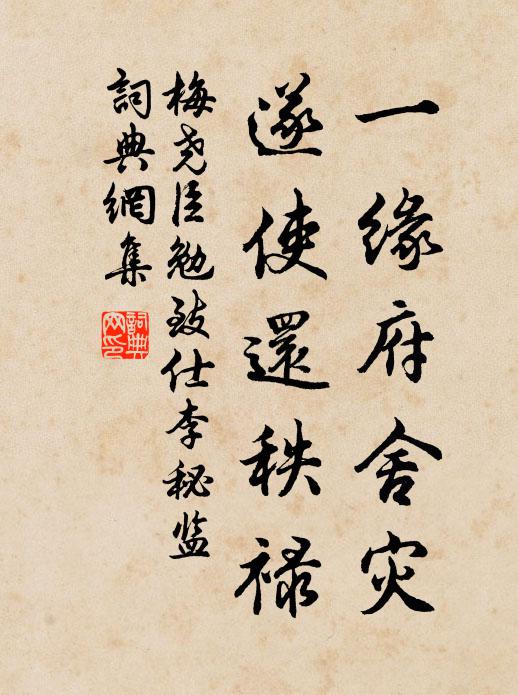 一緣府舍灾
遂使還秩祿
梅尧臣勉致仕李秘监
詞典網集
詞典網印